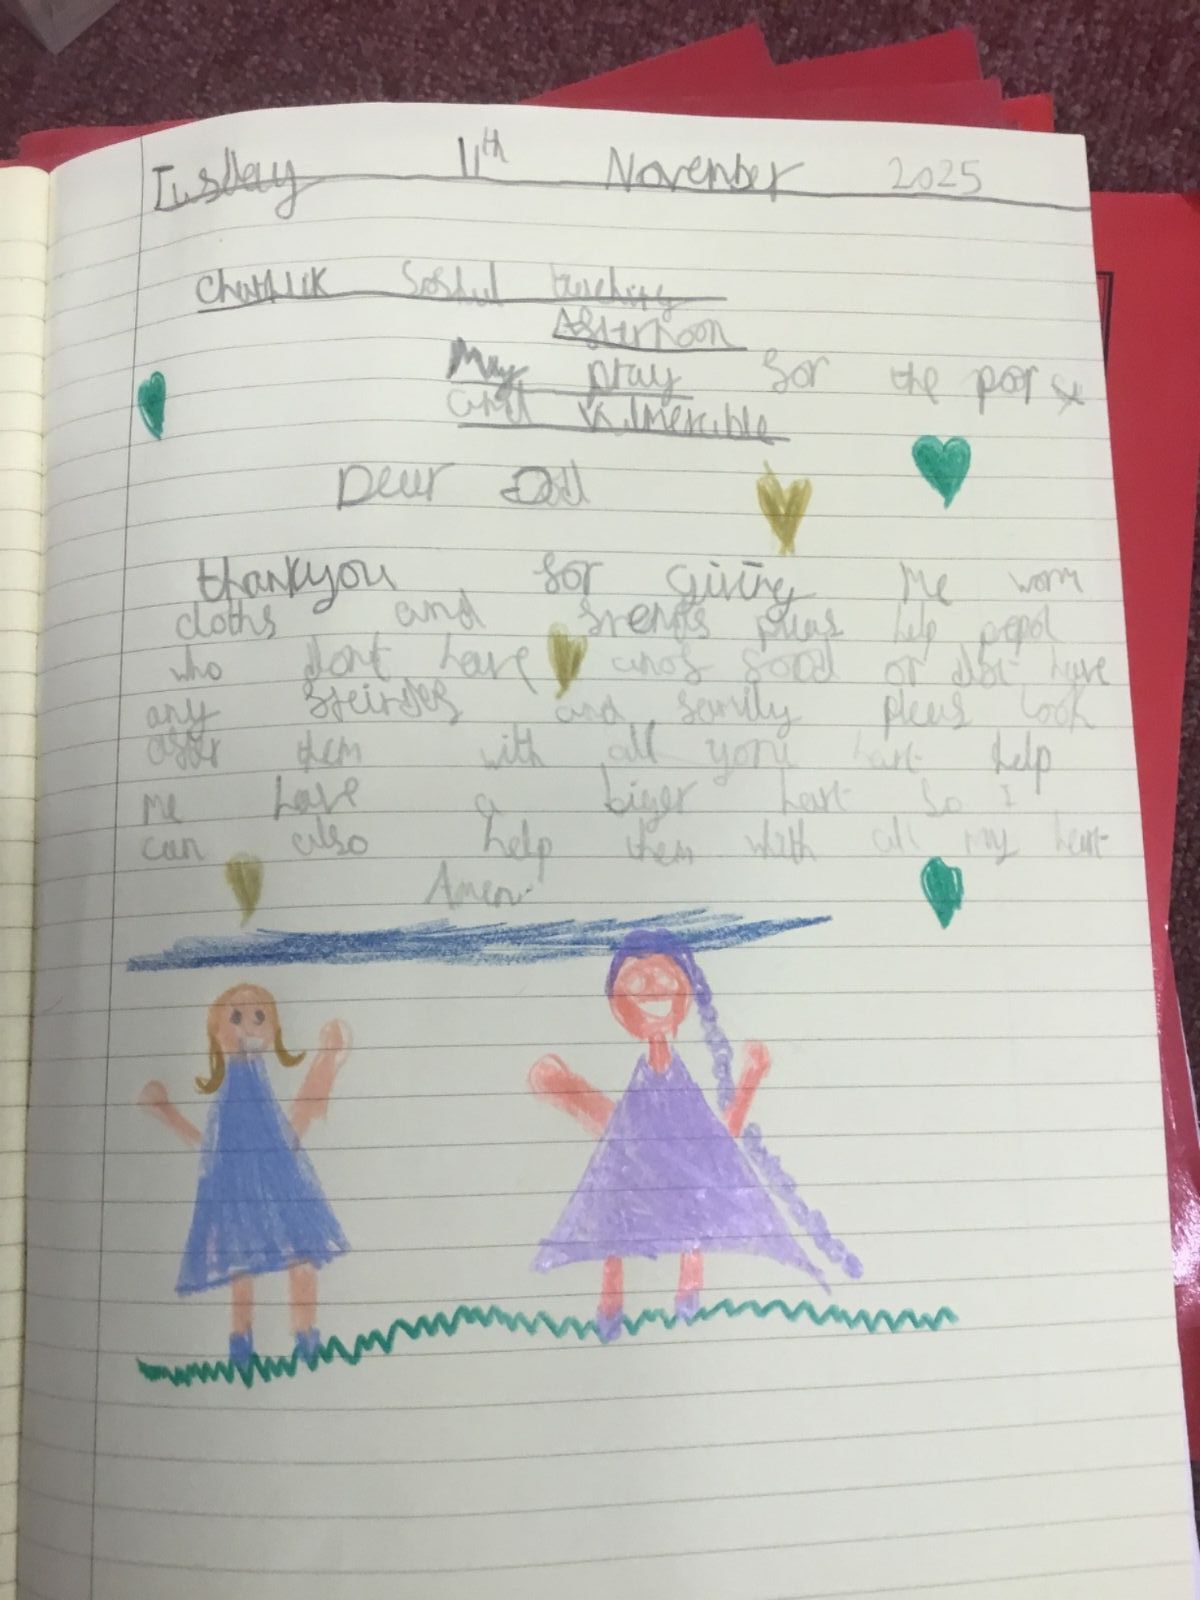 Tusday 11th November 2025
Chathlik Soshul teaching
Afternoon
My pray for the por
and vulnerable
Dear God
thankyou for giving me worm
cloths and frends pleas help pepol
who dont have food or dot have
any and family pleas look
after them with all your hart help
me have a biger hart so I
can also help them with all my hart
Amen.